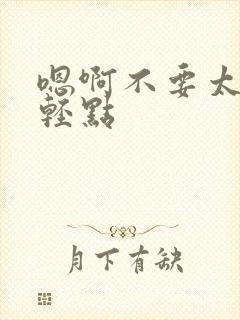 嗯啊不要太
輕點
月下有缺